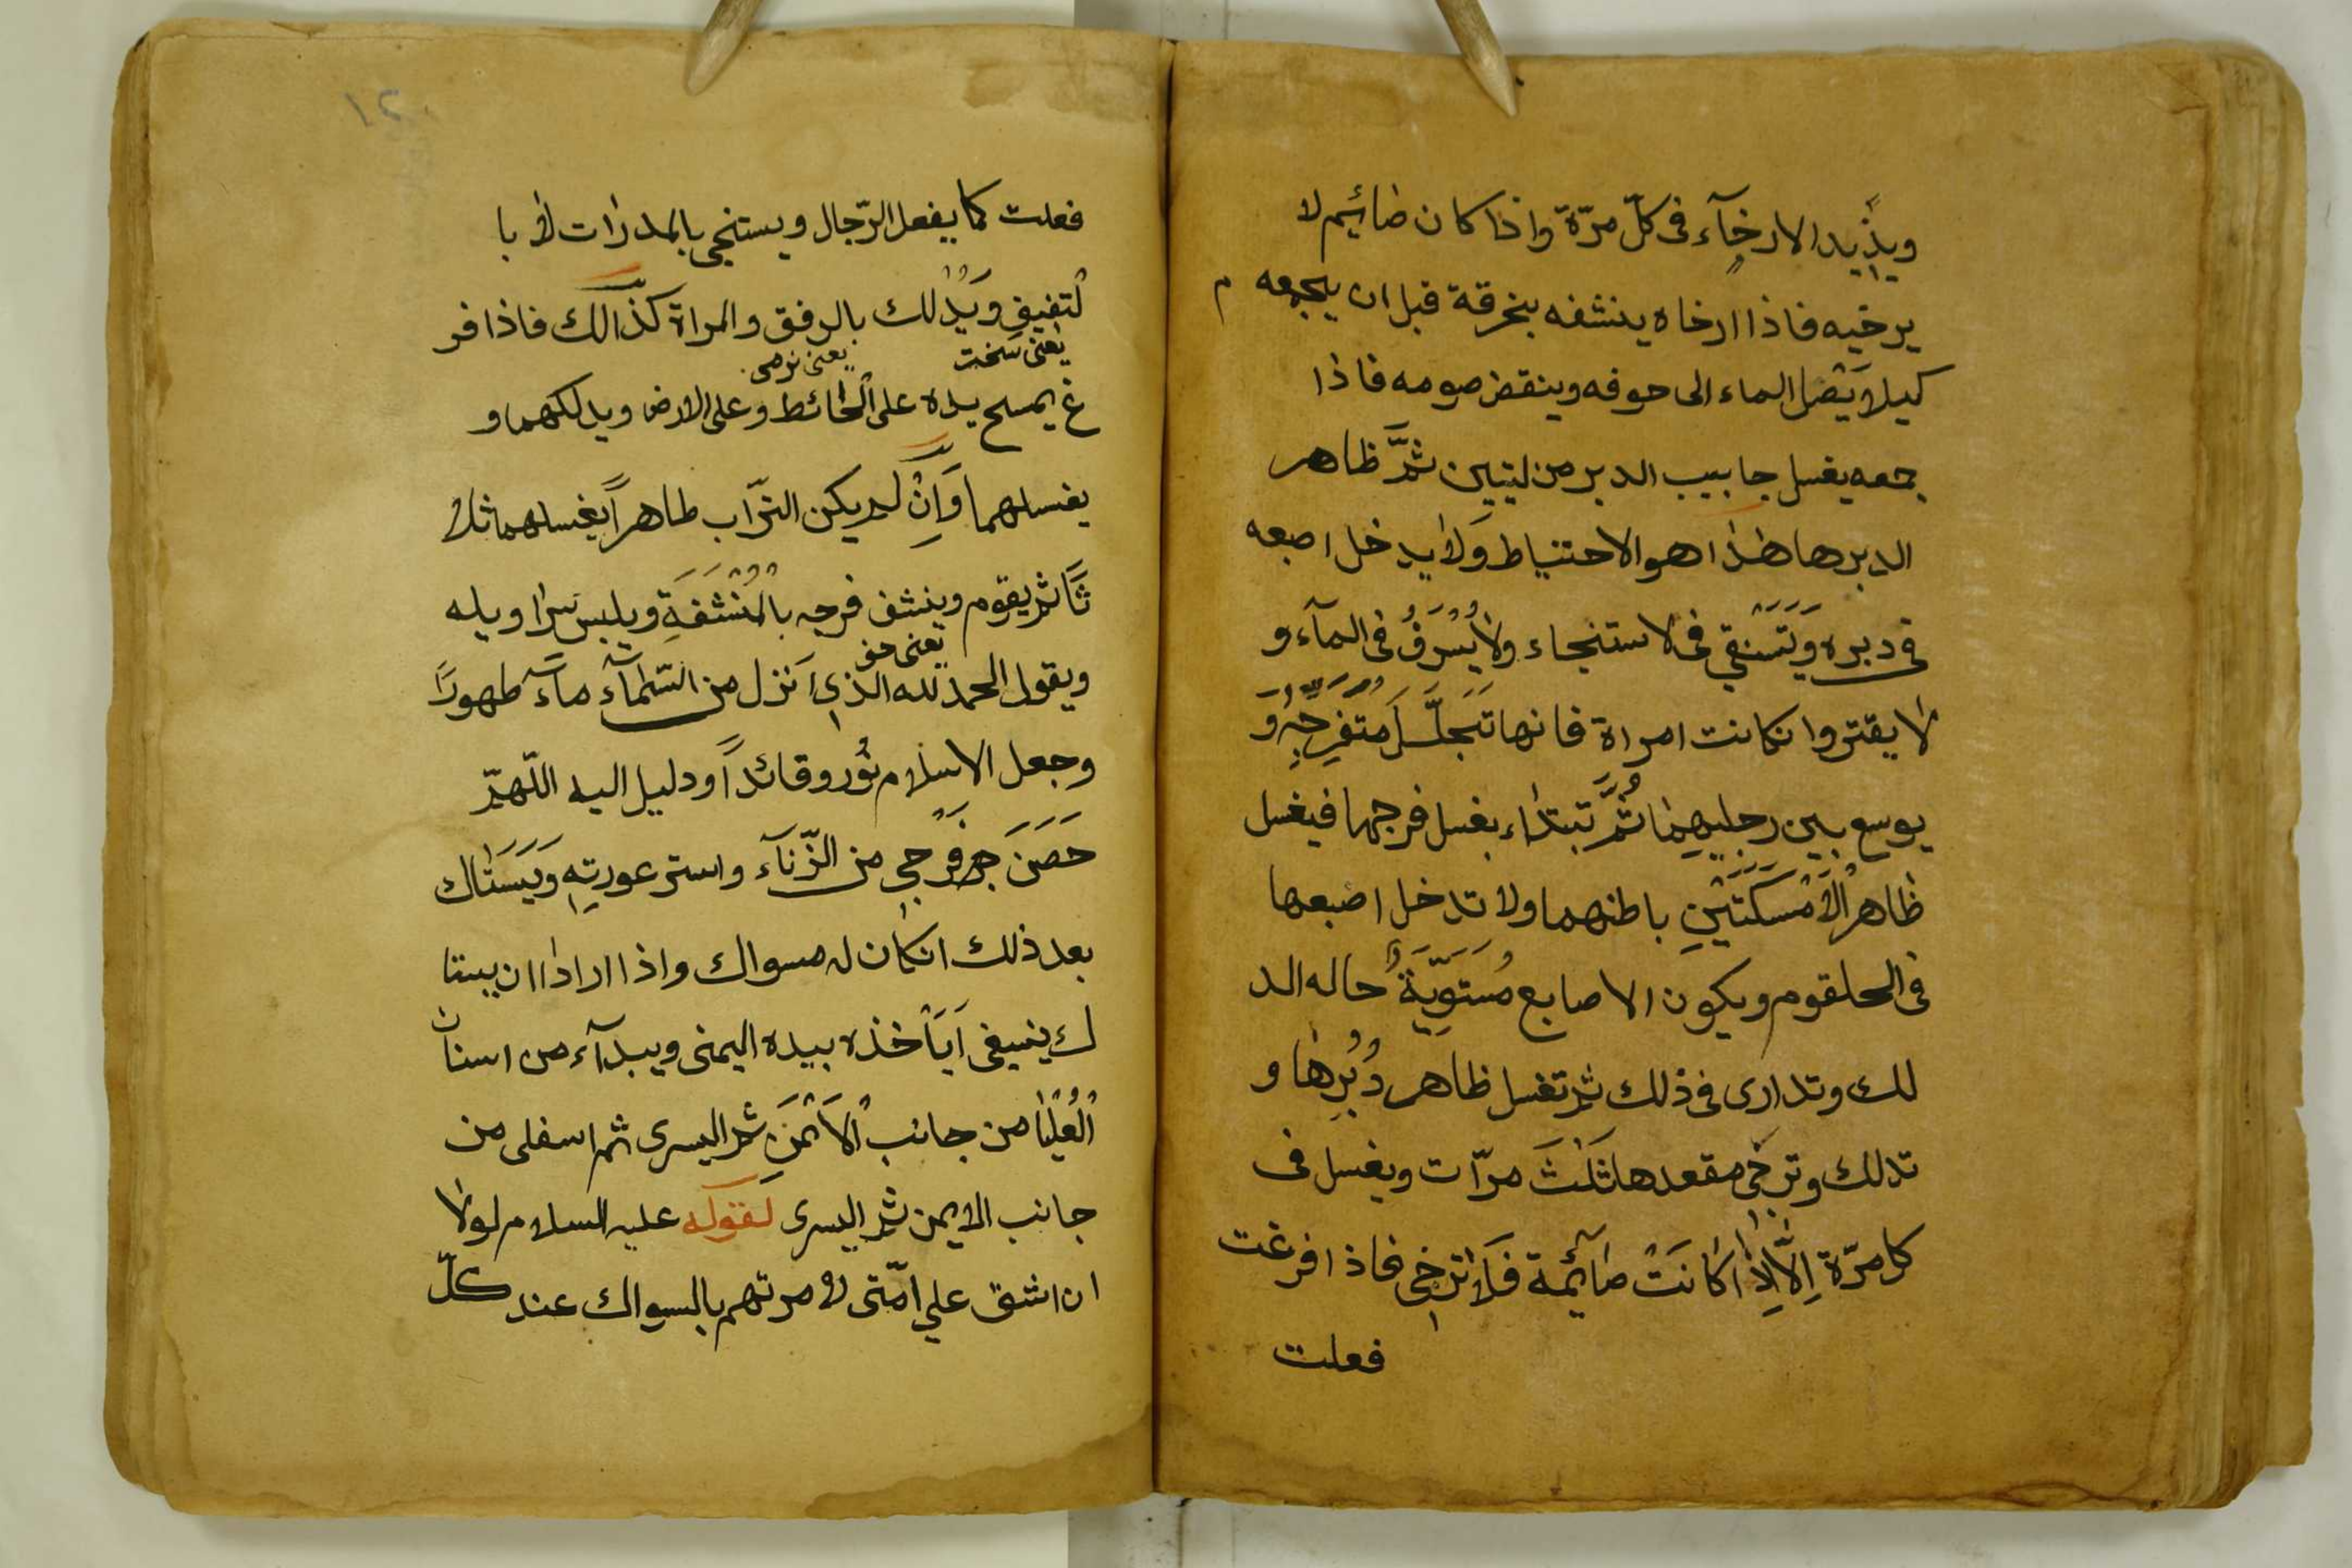 ويزيد الارخآء فى كلّ مرّة واذا كان صائيم لا
يرخيه فاذا ارخاه ينشفه بخرقة قبل ان يجمعه م
كيلا يَصل الماء الى حوفه وينقض صومه فاذا
جمعه يغسل جا بيب الدبر من ليتين ثمَّ ظاهر
الدبرها هذا هو الاحتنياط وَلا يدخل اصبعه
فى دبره وَيَتَسنقي فى لاستنجاء ولا يُسْرَفُ فى المآء و
لا يقتر وانكانت امراة فانها تَجَلَّسَلَ مُتَفَرِّجَةٍ وَ
يوسع بين رجليهِما ثُمَّ تبتداء بغسل فرجها فيغسل
ظاهر الْاَمْسَكَتَيْنِ باطنهما ولا تدخل اصبعها
فى الحلقوم ويكون الاصابع مُستَوِيَّةً حاله الد
لك وتدارى فى ذلك ثم تغسل ظاهر دُبُرِها و
تدلك وترخي مقعدها ثَلٰثَ مرّات ويغسل فى
كل مرّة اِلّا اِذا كانَتْ صآئيمة فَلا ترخي فاذا فرغت
فعلت
١٢٠
فعلت كما يفعل الرّجال ويستنجى بالمدرات لا با
لتفيف وَيَدْلك بالرفق والمراة كذالك فاذا فر
يعنى سخت يعنى نرمى
غ يمسح يده على الْحائط وعلى الارض ويدلكهما و
يغسلهما وَاِنْ لم يكن التّراب طاهراً يغسلهما ثلا
ثَا ثم يقوم وينشف فرجه بالْمُنْشَفَةِ ويلبس سراويله
يعنى حق
ويقول الحمد لله الّذي اَنزل من السّمآء مآءً طهورًا
وجعل الاسلام نُور وقائداً ودليل اليه اللّهمّ
حَصَنَ فرجي من الزّنآء واستر عورتِهِ وَيَسَتاك
بعد ذلك انكان له مسواك واذا ارادا ان يستا
ك ينبغى اَيَأخذه بيده اليمنى ويبدآء من اسنان
الْعُلْيا من جانب الْاَيْمَنِ ثم اليسرى ثم اسفلى من
جانب الايمن ثم اليسرى لقوله عليه السلام لولا
ان اشق علي امّتى لامرتهم بالسواك عند كلّ